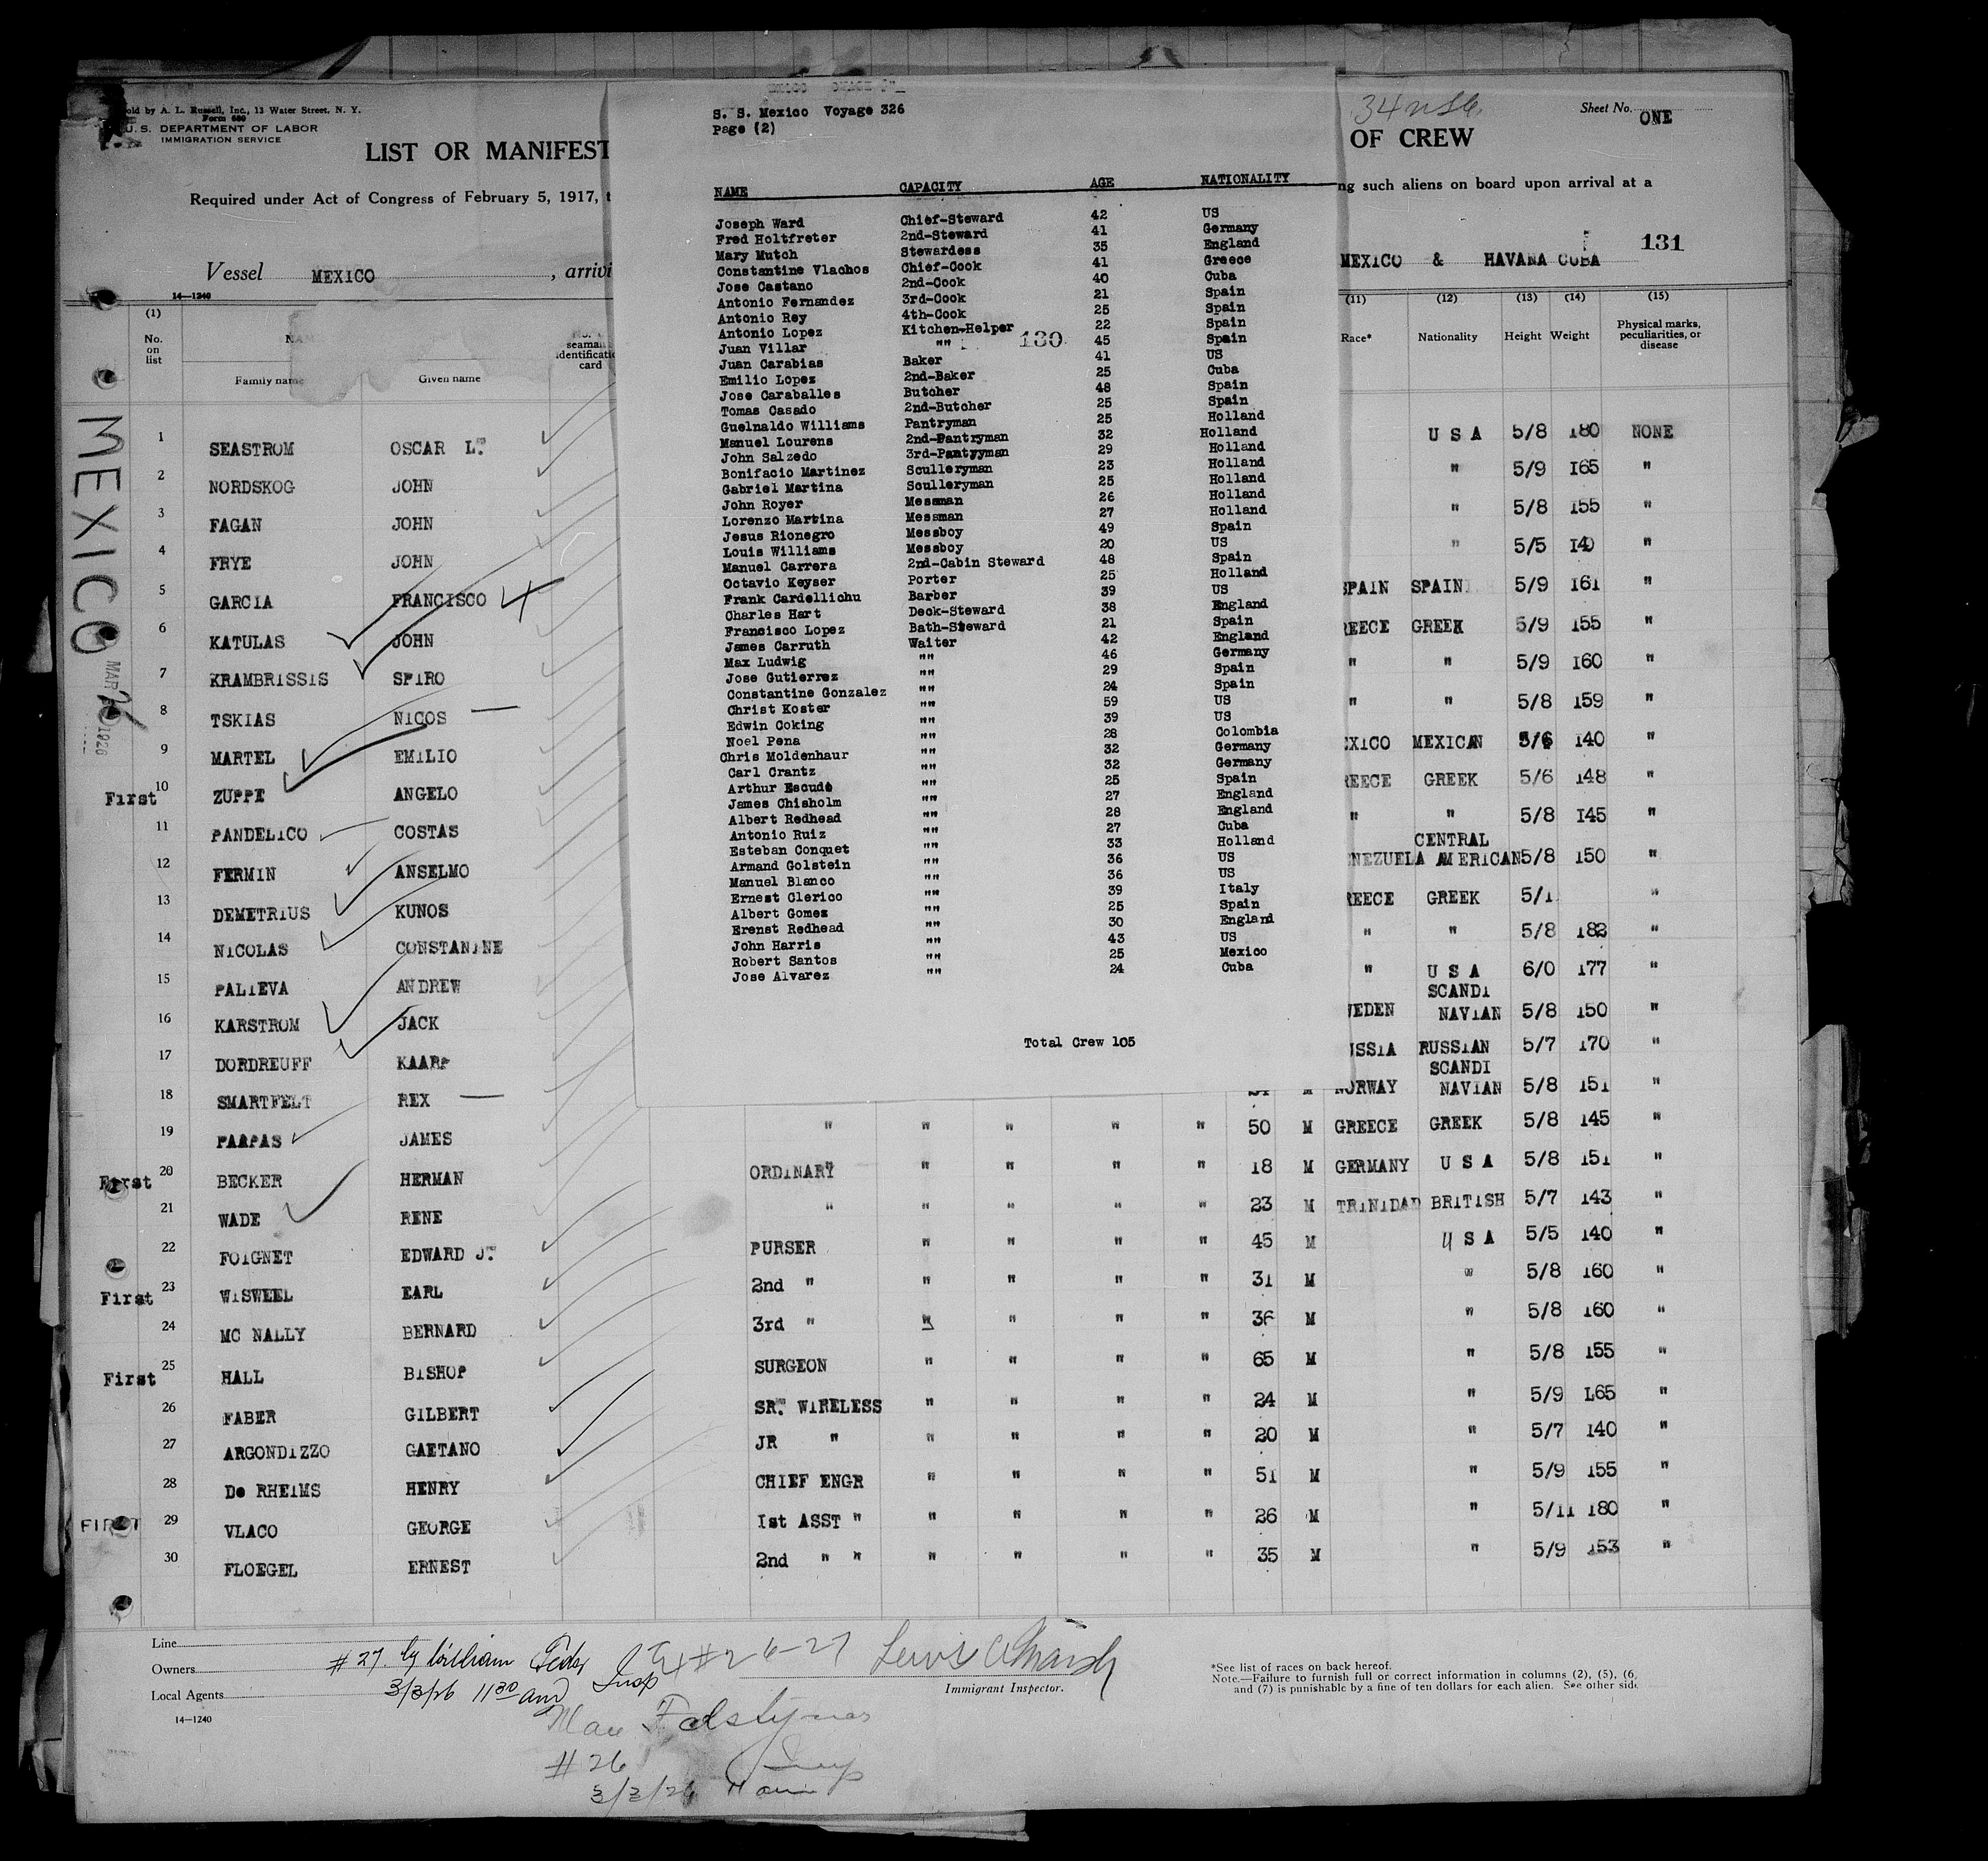 Sold by A. L. Russell, Inc., 13 Water Street, N. Y.
Form 680
U. S. DEPARTMENT OF LABOR
IMMIGRATION SERVICE
LIST OR MANIFEST
OF CREW
Sheet No. ONE
Required under Act of Congress of February 5, 1917, t
ng such aliens on board upon arrival at a
131
Vessel MEXICO , arrivi
MEXICO & HAVANA CUBA
14-1240
S. S. Mexico Voyage 326
Page (2)
NAME CAPACITY AGE NATIONALITY
Joseph Ward Chief-Steward 42 US
Fred Holtfreter 2nd-Steward 41 Germany
Mary Mutch Stewardess 35 England
Constantine Vlachos Chief-Cook 41 Greece
Jose Castano 2nd-Cook 40 Cuba
Antonio Fernandez 3rd-Cook 21 Spain
Antonio Rey 4th-Cook 25 Spain
Antonio Lopez Kitchen-Helper 22 Spain
130
Juan Villar "" 45 Spain
Juan Carabias Baker 41 US
Emilio Lopez 2nd-Baker 25 Cuba
Jose Caraballes Butcher 48 Spain
Tomas Casado 2nd-Butcher 25 Spain
Guelnaldo Williams Pantryman 25 Holland
Manuel Lourens 2nd-Pantryman 32 Holland
John Salzedo 3rd-Pantyyman 29 Holland
Bonifacio Martinez Sculleryman 23 Holland
Gabriel Martina Sculleryman 25 Holland
John Royer Messman 26 Holland
Lorenzo Martina Messman 27 Holland
Jesus Rionegro Messboy 49 Spain
Louis Williams Messboy 20 US
Manuel Carrera 2nd-Cabin Steward 48 Spain
Octavio Keyser Porter 25 Holland
Frank Cardellichu Barber 39 US
Charles Hart Deck-Steward 38 England
Francisco Lopez Bath-Steward 21 Spain
James Carruth Waiter 42 England
Max Ludwig "" 46 Germany
Jose Gutierrez "" 29 Spain
Constantine Gonzalez "" 24 Spain
Christ Koster "" 59 US
Edwin Coking "" 39 US
Noel Pena "" 28 Colombia
Chris Moldenhaur "" 32 Germany
Carl Crantz "" 32 Germany
Arthur Escude "" 25 Spain
James Chisholm "" 27 England
Albert Redhead "" 28 England
Antonio Ruiz "" 27 Cuba
Esteban Conquet "" 33 Holland
Armand Golstein "" 36 US
Manuel Blanco "" 36 US
Ernest Clerico "" 39 Italy
Albert Gomez "" 25 Spain
Erenst Redhead "" 30 England
John Harris "" 43 US
Robert Santos "" 25 Mexico
Jose Alvarez "" 24 Cuba
Total Crew 105
(1) (11) (12) (13) (14) (15)
No. on list Family name Given name seaman's identification card Race* Nationality Height Weight Physical marks, peculiarities, or disease
MEXICO
MAR 1926
1 SEASTROM OSCAR L. U S A 5/8 180 NONE
2 NORDSKOG JOHN " 5/9 165 "
3 FAGAN JOHN " 5/8 155 "
4 FRYE JOHN " 5/5 140 "
5 GARCIA FRANCISCO SPAIN SPAIN 5/9 161 "
6 KATULAS JOHN REECE GREEK 5/9 155 "
7 KRAMBRISSIS SPIRO " " 5/9 160 "
8 TSKIAS NICOS " " 5/8 159 "
9 MARTEL EMILIO EXICO MEXICAN 5/6 140 "
First 10 ZUPPE ANGELO REECE GREEK 5/6 148 "
11 PANDELICO COSTAS " " 5/8 145 "
12 FERMIN ANSELMO NEZUELA CENTRAL AMERICAN 5/8 150 "
13 DEMETRIUS KUNOS REECE GREEK 5/1 "
14 NICOLAS CONSTANINE " " 5/8 182 "
15 PALIEVA ANDREW " U S A 6/0 177 "
16 KARSTROM JACK WEDEN SCANDI NAVIAN 5/8 150 "
17 DORDREUFF KAARP USSIA RUSSIAN 5/7 170 "
18 SMARTFELT REX M NORWAY SCANDI NAVIAN 5/8 151 "
19 PAAPAS JAMES " " " " " 50 M GREECE GREEK 5/8 145 "
First 20 BECKER HERMAN ORDINARY " " " " 18 M GERMANY U S A 5/8 151 "
21 WADE RENE " " " " " 23 M TRINIDAD BRITISH 5/7 143 "
22 FOIGNET EDWARD J. PURSER " " " " 45 M U S A 5/5 140 "
First 23 WISWEEL EARL 2nd " " " " " 31 M " 5/8 160 "
24 MC NALLY BERNARD 3rd " " " " " 36 M " 5/8 160 "
First 25 HALL BISHOP SURGEON " " " " 65 M " 5/8 155 "
26 FABER GILBERT SR. WIRELESS " " " " 24 M " 5/9 165 "
27 ARGONDIZZO GAETANO JR " " " " " 20 M " 5/7 140 "
28 De RHEIMS HENRY CHIEF ENGR " " " " 51 M " 5/9 155 "
FIRST 29 VLACO GEORGE 1st ASST " " " " " 26 M " 5/11 180 "
30 FLOEGEL ERNEST 2nd " " " " " " 35 M " 5/9 153 "
Line
Owners
Local Agents
14-1240
#27 by William Insp
3/3/26 11 30 am
Ex #26-27
Immigrant Inspector.
#26
3/3/26
*See list of races on back hereof.
Note.—Failure to furnish full or correct information in columns (2), (5), (6,
and (7) is punishable by a fine of ten dollars for each alien. See other side